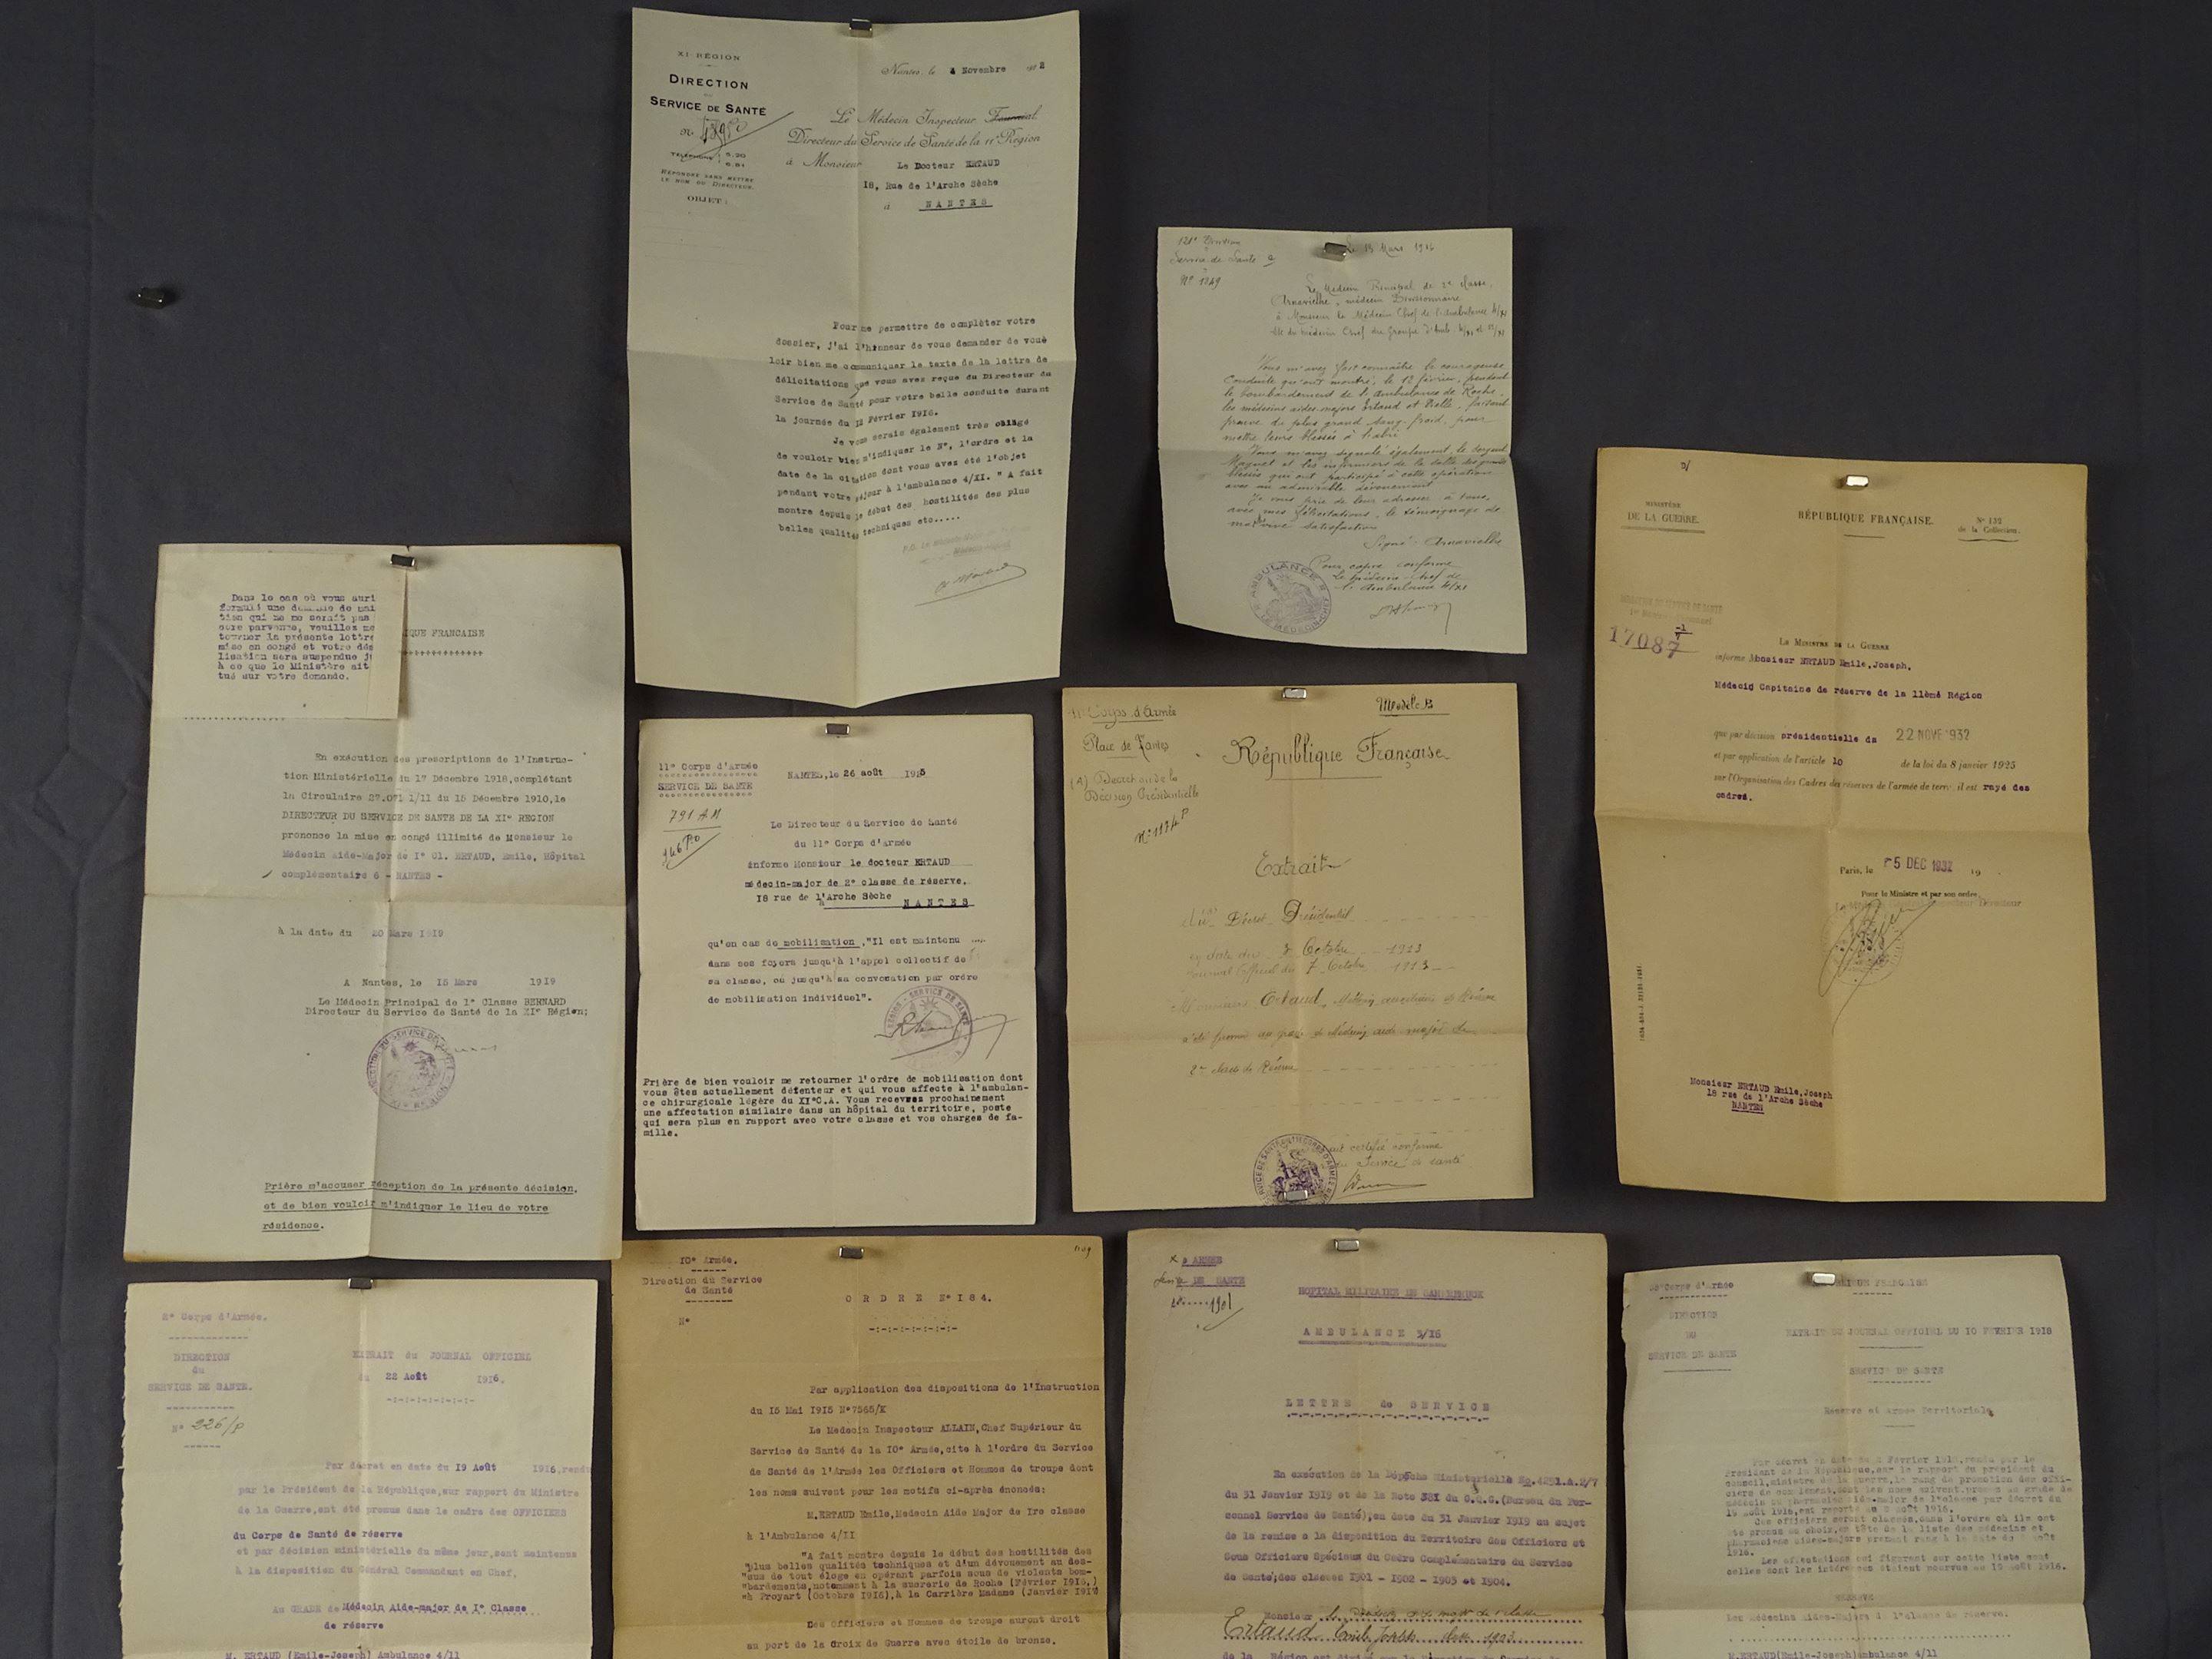 XI RÉGION
DIRECTION
DU
SERVICE DE SANTÉ
TÉLÉPHONE : 5.20
6.81
RÉPONDRE SANS METTRE
LE NOM DU DIRECTEUR.
OBJET :
Nantes, le 4 Novembre
Le Médecin Inspecteur
Directeur du Service de Santé de la 11e Région
à Monsieur Le Docteur ERTAUD
18, Rue de l'Arche Sèche
à NANTES
Pour me permettre de compléter votre
dossier, j'ai l'honneur de vous demander de voul
loir bien me communiquer le texte de la lettre de
délicitations que vous avez reçue du Directeur du
Service de Santé pour votre belle conduite durant
la journée du 12 Février 1916.
Je vous serais également très obligé
de vouloir bien m'indiquer le N°, l'ordre et la
date de la citation dont vous avez été l'objet
pendant votre séjour à l'ambulance 4/XI. " A fait
montre depuis le début des hostilités des plus
belles qualités techniques etc.....
Service de Santé
N° 1849
Le 13 Mars 1916
Le Médecin Principal de 2e classe,
Arnavielhe, médecin Divisionnaire
à Monsieur le Médecin Chef de l'Ambulance 4/XI
Vous m'avez fait connaître la courageuse
conduite qu'ont montré, le 12 février, pendant
le bombardement de l'ambulance de Roche,
les médecins aides-majors Ertaud et Vielle, faisant
preuve du plus grand sang-froid, pour
mettre leurs blessés à l'abri
Vous m'avez signalé également le sergent
Magnet et les infirmiers de la salle des grands
blessés qui ont participé à cette opération
avec un admirable dévouement
Je vous prie de leur adresser à tous,
avec mes félicitations, le témoignage de
ma vive satisfaction
Signé : Arnavielhe
Pour copie conforme
Le médecin-chef de
l'Ambulance 4/XI
MINISTÈRE
DE LA GUERRE.
RÉPUBLIQUE FRANÇAISE.
N° 132
de la Collection.
17087
LE MINISTRE DE LA GUERRE
informe Monsieur ERTAUD Emile, Joseph,
Médecin Capitaine de réserve de la 11ème Région
que par décision présidentielle du 22 NOVE 1932
et par application de l'article 10 de la loi du 8 janvier 1925
sur l'Organisation des Cadres des réserves de l'armée de terre, il est rayé des
cadres.
Paris, le 5 DEC 1932 19
Pour le Ministre et par son ordre,
Monsieur ERTAUD Emile, Joseph
18 rue de l'Arche Sèche
NANTES
Dans le cas où vous auri
formulé une demande de mai
tien qui ne me serait pas
core parvenue, veuillez me
tourner la présente lettre
mise en congé et votre dém
lisation sera suspendue j
à ce que le Ministère ait
tué sur votre demande.
IQUE FRANCAISE
En exécution des prescriptions de l'Instruc-
tion Ministérielle du 1er Décembre 1918, complétant
la Circulaire 27.071 1/11 du 15 Décembre 1910, le
DIRECTEUR DU SERVICE DE SANTE DE LA XI° REGION
prononce la mise en congé illimité de Monsieur le
Médecin aide-Major de I° Cl. ERTAUD, Emile, Hôpital
complémentaire 6 - NANTES -
à la date du 20 Mars 1919
A Nantes, le 15 Mars 1919
Le Médecin Principal de 1° Classe BERNARD
Directeur du Service de Santé de la XI° Région;
Prière m'accuser réception de la présente décision,
et de bien vouloir m'indiquer le lieu de votre
résidence.
11° Corps d'Armée
SERVICE DE SANTE
791 AM
NANTES, le 26 août
Le Directeur du Service de Santé
du 11° Corps d'Armée
informe Monsieur le docteur ERTAUD
médecin-major de 2° classe de réserve,
18 rue de l'Arche Sèche NANTES
qu'en cas de mobilisation, "Il est maintenu
dans ses foyers jusqu'à l'appel collectif de
sa classe, ou jusqu'à sa convocation par ordre
de mobilisation individuel".
Prière de bien vouloir me retourner l'ordre de mobilisation dont
vous êtes actuellement détenteur et qui vous affecte à l'ambulan-
ce chirurgicale légère du XI°C.A. Vous recevrez prochainement
une affectation similaire dans un hôpital du territoire, poste
qui sera plus en rapport avec votre classe et vos charges de fa-
mille.
11e Corps d'Armée
Place de Nantes
(A) Décret ou de la
Décision Présidentielle
Modèle B
République Française
Extrait
Décret Présidentiel
en date du 3 Octobre 1913
Journal Officiel du 7 Octobre 1913
Monsieur Ertaud, Médecin auxiliaire de Réserve
a été promu au grade de Médecin aide-major de
2e classe de Réserve
certifié conforme
Service de santé
2° Corps d'Armée.
DIRECTION
du
SERVICE DE SANTE.
N° 226/P
EXTRAIT du JOURNAL OFFICIEL
du 22 Août 1916.
Par décret en date du 19 Août 1916, rendu
par le Président de la République, sur rapport du Ministre
de la Guerre, ont été promus dans le cadre des OFFICIERS
du Corps de Santé de réserve
et par décision ministérielle du même jour, sont maintenus
à la disposition du Général Commandant en Chef,
Au GRADE de Médecin Aide-major de I° Classe
de réserve
M. ERTAUD (Emile-Joseph) Ambulance 4/11
10° Armée.
Direction du Service
de Santé
N°
ORDRE N° 184.
Par application des dispositions de l'Instruction
du 15 Mai 1915 N°7565/K
Le Médecin Inspecteur ALLAIN, Chef Supérieur du
Service de Santé de la 10° Armée, cite à l'ordre du Service
de Santé de l'Armée les Officiers et Hommes de troupe dont
les noms suivent pour les motifs ci-après énoncés:
M. ERTAUD Emile, Medecin Aide Major de Ire classe
à l'Ambulance 4/II
"A fait montre depuis le début des hostilités des
"plus belles qualités techniques et d'un dévouement au des-
"sus de tout éloge en opérant parfois sous de violents bom-
"bardements, notamment à la sucrerie de Roche (Février 1916,)
"à Proyart (Octobre 1916), à la Carrière Madame (Janvier 1917
Ces Officiers et Hommes de troupe auront droit
au port de la Croix de Guerre avec étoile de bronze.
X° ARMEE
Service DE SANTE
HOPITAL MILITAIRE DE
AMBULANCE 3/16
LETTRE de SERVICE
En exécution de la Dépêche Ministérielle No.4251.A.2/7
du 31 Janvier 1919 et de la Note 381 du G.Q.G. (Bureau du Per-
sonnel Service de Santé), en date du 31 Janvier 1919 au sujet
de la remise à la disposition du Territoire des Officiers et
Sous Officiers Spéciaux du Cadre Complémentaire du Service
de Santé, des classes 1901 - 1902 - 1903 et 1904.
Monsieur
Ertaud Emile Joseph classe 1903
Corps d'Armée
DIRECTION
DU
SERVICE DE SANTE
REPUBLIQUE FRANCAISE
EXTRAIT DU JOURNAL OFFICIEL DU 10 FEVRIER 1918
SERVICE DE SANTE
Réserve et Armée Territoriale
Par décret en date du 2 Février 1918, rendu par le
Président de la République, sur le rapport du président du
conseil, ministre de la guerre, le rang de promotion des offi-
ciers de complément, dont les noms suivent, promus au grade de
médecin ou pharmacien aide-major de 1°classe par décret du
19 août 1916, est reporté au 9 août 1916.
Ces officiers seront classés, dans l'ordre où ils ont
été promus au choix, en tête de la liste des médecins et
pharmaciens aides-majors prenant rang à la date du août
1916.
Les affectations qui figurent sur cette liste sont
celles dont les intéressés étaient pourvus au 19 août 1916.
RESERVE
Les Médecins Aides-Majors de 1°classe de réserve.
M. ERTAUD (Emile-Joseph) ambulance 4/11